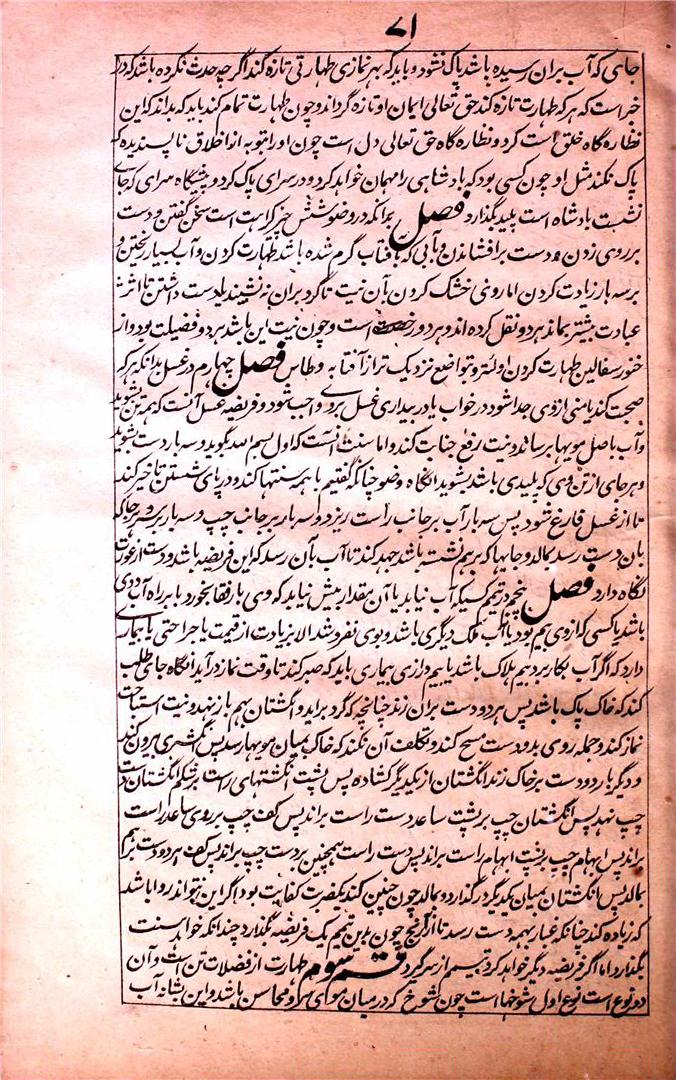 ۷۱
جای که آب بران رسیده باشد پاک نشود و باید که بهر نمازی طهارتی تازه کند اگر چه حدث نکرده باشد که در
خبر است که هر که طهارت تازه کند حق تعالی ایمان او تازه گرداند و چون طهارت تمام کند باید که بداند که این
نظاره گاه خلق است کرد و نظاره گاه حق تعالی دل است چون او را بتوبه از اخلاق ناپسندیده
پاک نکند مثل او چون کسی بود که پادشاهی را مهمان خواهد کرد و در سرای پاک کرد و پیشگاه سرای که جای
نشست پادشاه است پلید بگذارد فصل بدانکه در وضو شش چیز کراهت است سخن گفتن و دست
بر روی زدن و دست برافشاندن و بآبی که بآفتاب گرم شده باشد طهارت کردن و آب بسیار ریختن و
بر سه بار زیادت کردن اما روی خشک کردن بآن نیت تا گرد بران نه نشیند یا دست داشتن تا اثر
عبادت بیشتر بماند هر دو نقل کرده اند و هر دو رخصت است و چون نیت این باشد هر دو فضیلت بود و از
خنور سفالین طهارت کردن اولیٰ تر و بتواضع نزدیک تر از آفتابه و طاس فصل چهارم در غسل بدانکه هر که
صحبت کند یا منی از وی جدا شود در خواب یا در بیداری غسل بروی واجب شود و فریضه غسل آنست که همه تن بشوید
و آب باصل مویها برساند و نیت رفع جنابت کند و اما سنت آنست که اول بسم الله گوید و سه بار دست بشوید
و هر جای از تن وی که پلیدی باشد بشوید آنگاه وضو چنانکه گفتیم با همه سنتها کند و در پای شستن تاخیر کند
تا از غسل فارغ شود پس سه بار آب بر جانب راست ریزد و سه بار بر جانب چپ و سه بار بر سر و هر جا که
بآن دست رسد بمالد و جایها که بر هم نشسته باشد جهد کند تا آب بآن رسد که این فریضه باشد و دست از عورت
نگاه دارد فصل پنجم در تیمم کسیکه آب نیابد یا آن مقدار بیش نیابد که وی با رفقا بخورد یا بر راه آب ددی
باشد یا کسی که از وی بیم بود یا آب ملک دیگری باشد و بوی نفروشد الا بزیادت از قیمت یا جراحتی یا بیماری
دارد که اگر آب بکار برد بیم هلاک باشد یا بیم درازی بیماری باید که صبر کند تا وقت نماز درآید آنگاه جای طلب
کند که خاک پاک باشد پس هر دو دست بران زند چنانچه که گرد برآید و انگشتان بهم باز نهد و نیت استباحت
نماز کند و جمله روی بدو دست مسح کند و تکلف آن نکند که خاک بمیان مویها رسد پس انگشتری بیرون کند
و دیگر بار دو دست بر خاک زند انگشتان از یکدیگر گشاده پس پشت انگشتهای راست بر شکم انگشتان دست
چپ نهد پس انگشتان چپ بر پشت ساعد دست راست براند پس کف چپ بر روی ساعد راست
براند پس ابهام چپ بر پشت ابهام راست براند پس دست راست همچنین بر دست چپ براند پس کف هر دو دست بر هم
بمالد پس انگشتان بمیان یکدیگر درگذارد و بمالد چون چنین کند یکضربت کفایت بود اگر این نتواند روا باشد
که زیاده کند چنانکه غبار بهمه دست رسد تا آرنج چون بدین تیمم یک فریضه بگذارد چندانکه خواهد سنت
بگذارد اما اگر فریضه دیگر خواهد کرد تیمم از سر گیرد قسم سوم طهارت از فضلات تن است و آن
دو نوع است نوع اول شوخها است چون شوخ که در میان موی سر و محاسن باشد و این بشانه آب